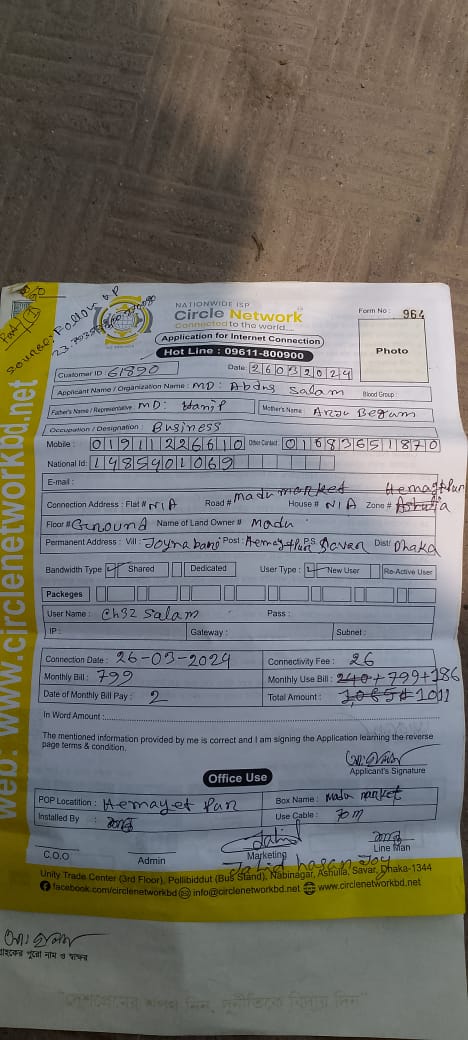 NATIONWIDE ISP
Circle Network
Connected to the world....
Form No : 964
Application for Internet Connection
Hot Line : 09611-800900
Photo
Customer ID 61890
Date: 26032024
Applicant Name / Organization Name : MD: Abdus Salam Blood Group :
Father's Name / Representative MD: Hanif Mother's Name : Anju Begum
Occupation / Designation : Business
Mobile : 01911226610 Other Contact 01683651870
National Id: 1485401069
E-mail :
Connection Address : Flat # N/A Road # Madu market House # N/A Zone # Ashulia
Floor # Ground Name of Land Owner # Madu
Permanent Address : Vill : Joynabani Post : P.S. Savar Dist/ Dhaka
Bandwidth Type Shared Dedicated User Type : New User Re-Active User
Packeges
User Name : Ch32 Salam Pass :
IP : Gateway : Subnet :
Connection Date : 26-03-2024 Connectivity Fee : 26
Monthly Bill : 799 Monthly Use Bill : 240+799+186
Date of Monthly Bill Pay : 2 Total Amount : 1011
In Word Amount :
The mentioned information provided by me is correct and I am signing the Application learning the reverse
page terms & condition.
Applicant's Signature
Office Use
POP Locatition : Hemayet Pur Box Name : Madu market
Installed By : Use Cable : 70m
C.O.O Admin Marketing Line Man
Jahid hasan Joy
Unity Trade Center (3rd Floor), Pollibiddut (Bus Stand), Nabinagar, Ashulia, Savar, Dhaka-1344
facebook.com/circlenetworkbd info@circlenetworkbd.net www.circlenetworkbd.net
web: www.circlenetworkbd.net
গ্রাহকের পুরো নাম ও স্বাক্ষর